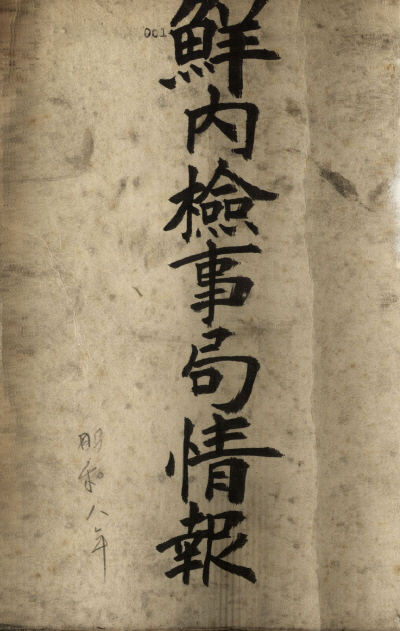 001
鮮内檢事局情報
昭和八年